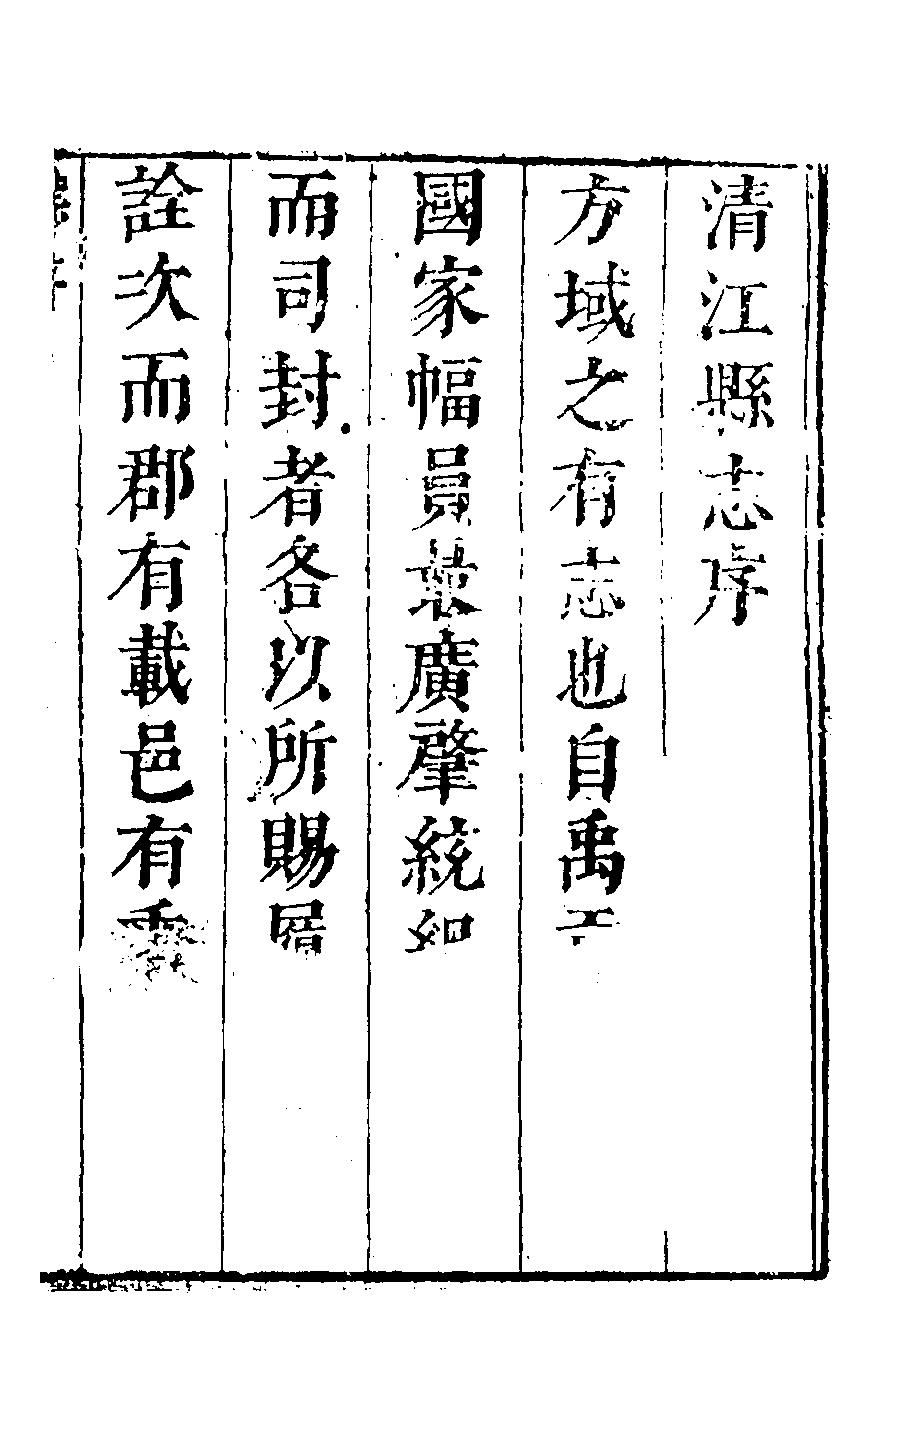 清江縣志序
方域之有志也自禹
國家幅員最廣肇統
而司封者各以所賜
詮次而郡有載邑有